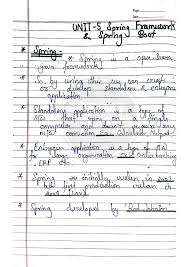 Page
Date
UNIT-5 Spring Framework
& Spring Boot
* Spring -
* Spring is a open source
java framework.
* In by using this we can create
or develop standalone & enterprise
application
* Standalone application is a type of
that runs on a single
computer and doesn't require any
n/w connection Calculator, Notepad
* Enterprise application is a type of
for large organization Online banking
ERP etc.
* Spring is initially written in
first production release in
* Spring developed by "Rod Johnson"